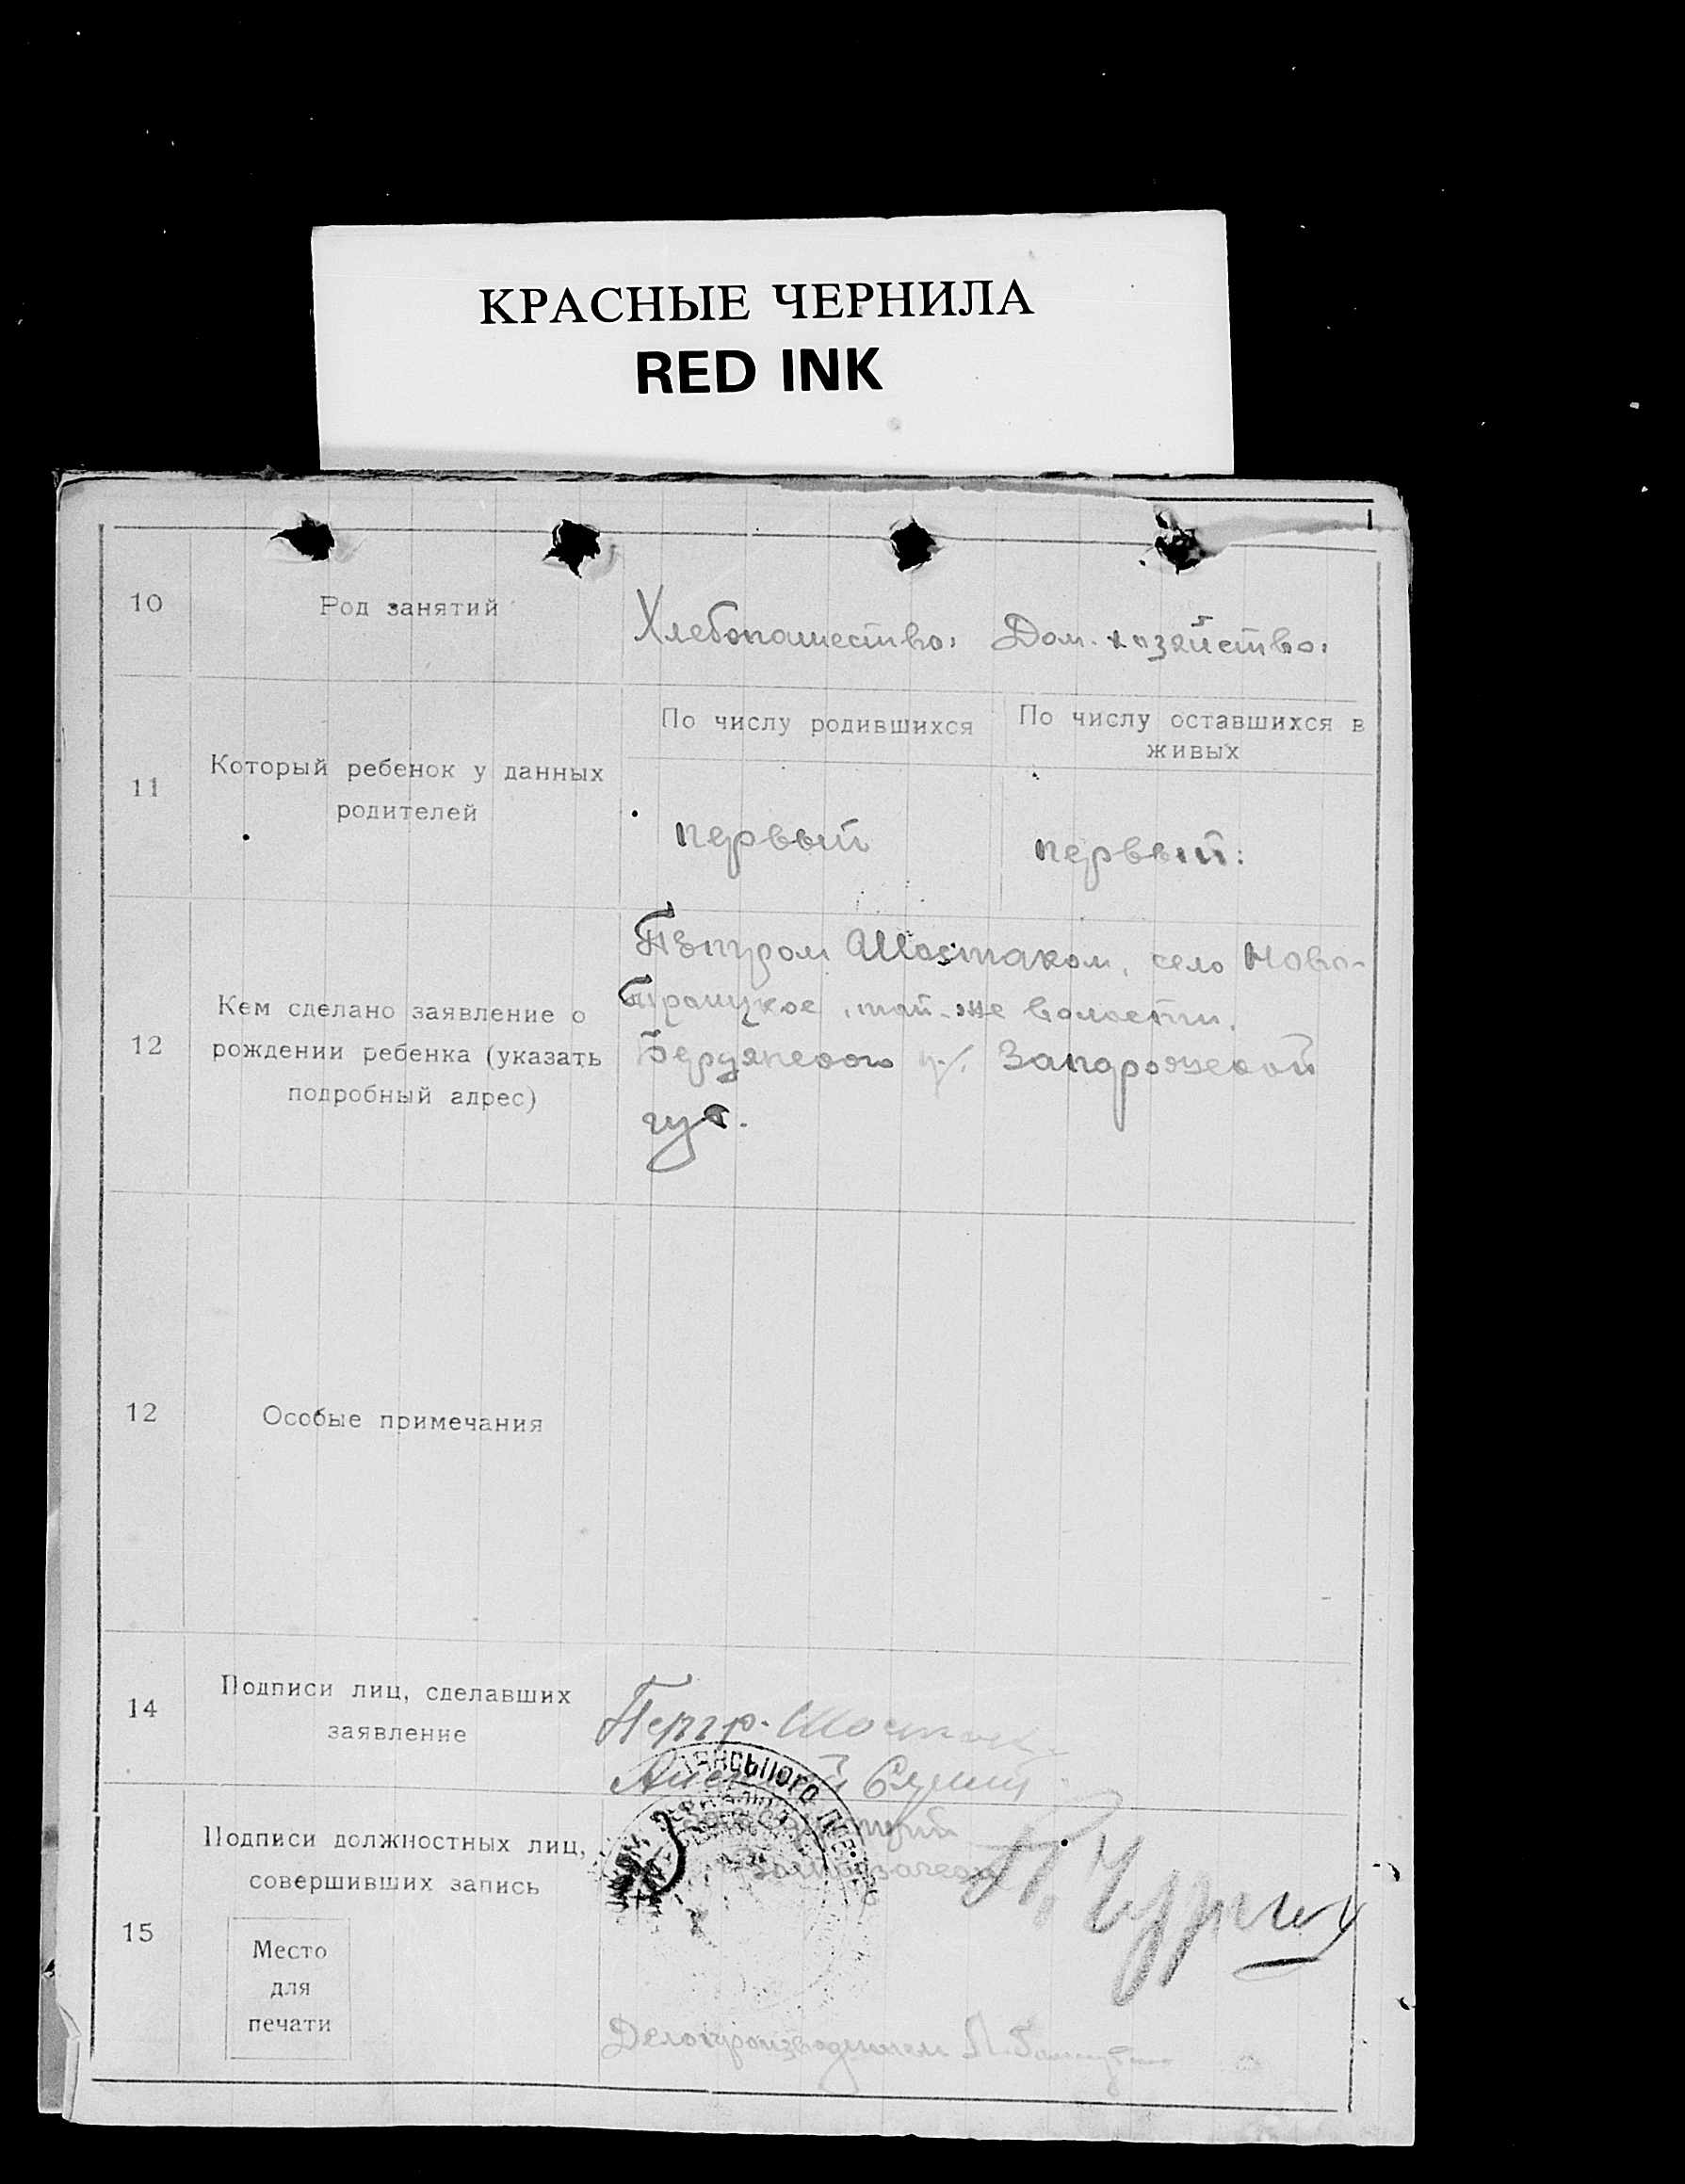 КРАСНЫЕ ЧЕРНИЛА
RED INK
10
Род занятий
Хлебопашество. Дом. хозяйство.
11
Который ребенок у данных
родителей
По числу родившихся
По числу оставшихся в
живых
первый
первый.
12
Кем сделано заявление о
рождении ребенка (указать
подробный адрес)
Петром Шостаком, село Ново-
троицкое, той-же волости,
Бердянского у/. Запорожской
губ.
12
Особые примечания
14
Подписи лиц, сделавших
заявление
Петр. Шостак
15
Подписи должностных лиц,
совершивших запись
Место
для
печати
Делопроизводитель